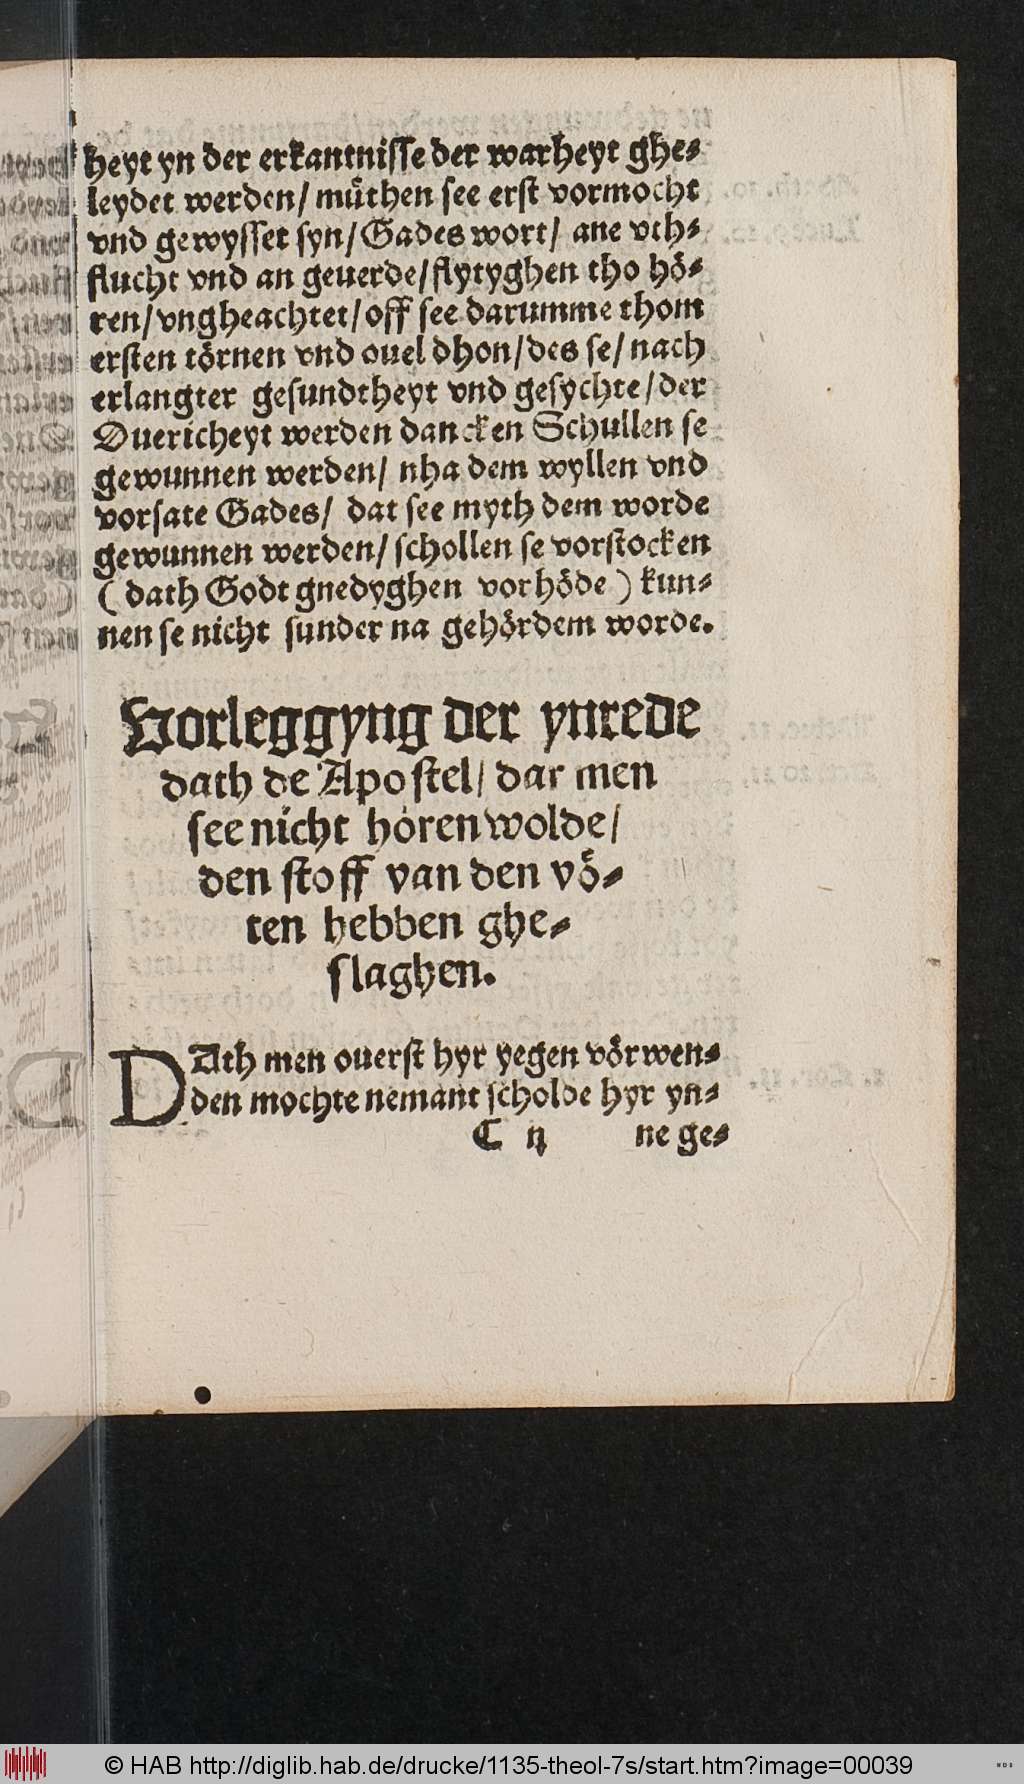 heyt yn der erkantnisse der warheyt ghe-
leydet werden/ müthen see erst vormocht
vnd gewysset syn/ Gades wort/ ane vth-
flucht vnd an geuerde/ flytyghen tho hö-
ren/ vngheachtet/ off see darumme thom
ersten törnen vnd ouel dhon/ des se/ nach
erlangter gesundtheyt vnd gesychte/ der
Ouericheyt werden dancken Schullen se
gewunnen werden/ nha dem wyllen vnd
vorsate Gades/ dat see myth dem worde
gewunnen werden/ schollen se vorstocken
( dath Godt gnedyghen vorhöde ) kun-
nen se nicht sunder na gehördem worde.
Vorleggyng der ynrede
dath de Apostel/ dar men
see nicht hören wolde/
den stoff van den vö-
ten hebben ghe-
slaghen.
DAth men ouerst hyr yegen vörwen-
den mochte nemant scholde hyr yn-
C ij ne ge-
© HAB http://diglib.hab.de/drucke/1135-theol-7s/start.htm?image=00039